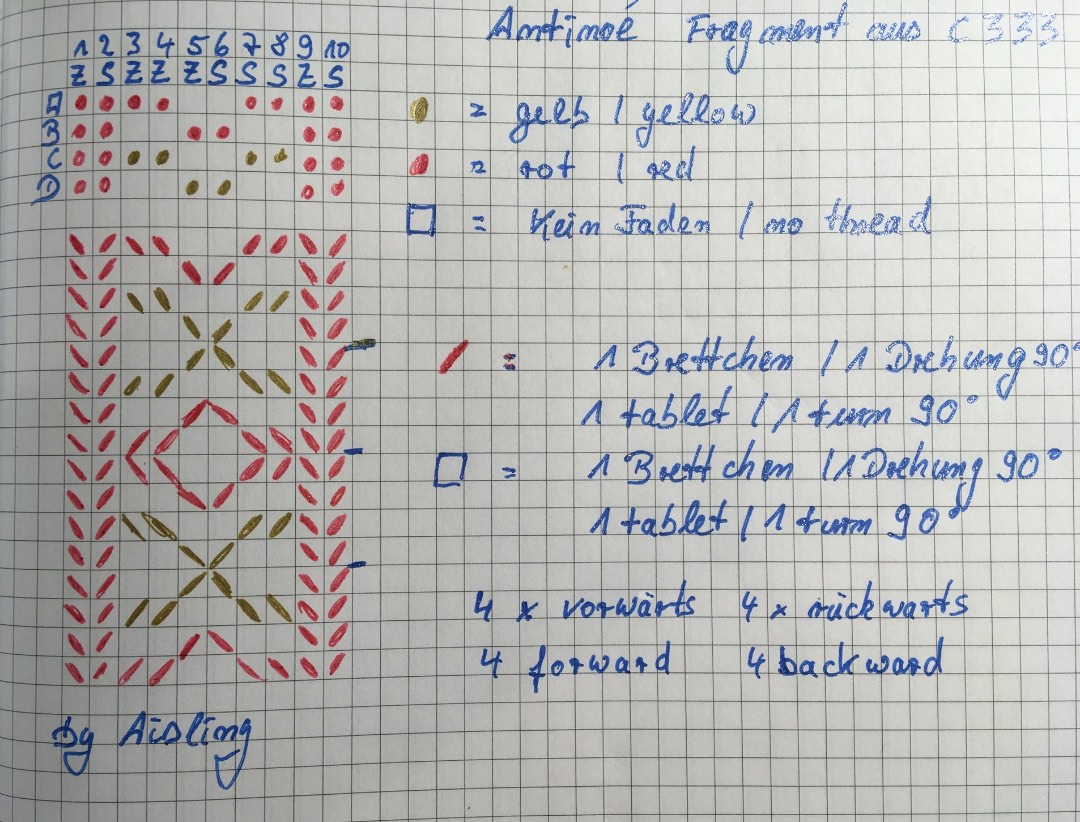 Antinoé Fragment aus C333
1 2 3 4 5 6 7 8 9 10
Z S Z Z Z S S S Z S
A
B
C
D
= gelb / yellow
= rot / red
= Kein Faden / no thread
= 1 Brettchen / 1 Drehung 90°
1 tablet / 1 turn 90°
= 1 Brettchen / 1 Drehung 90°
1 tablet / 1 turn 90°
4 x vorwärts 4 x rückwärts
4 forward 4 backward
by Aisling